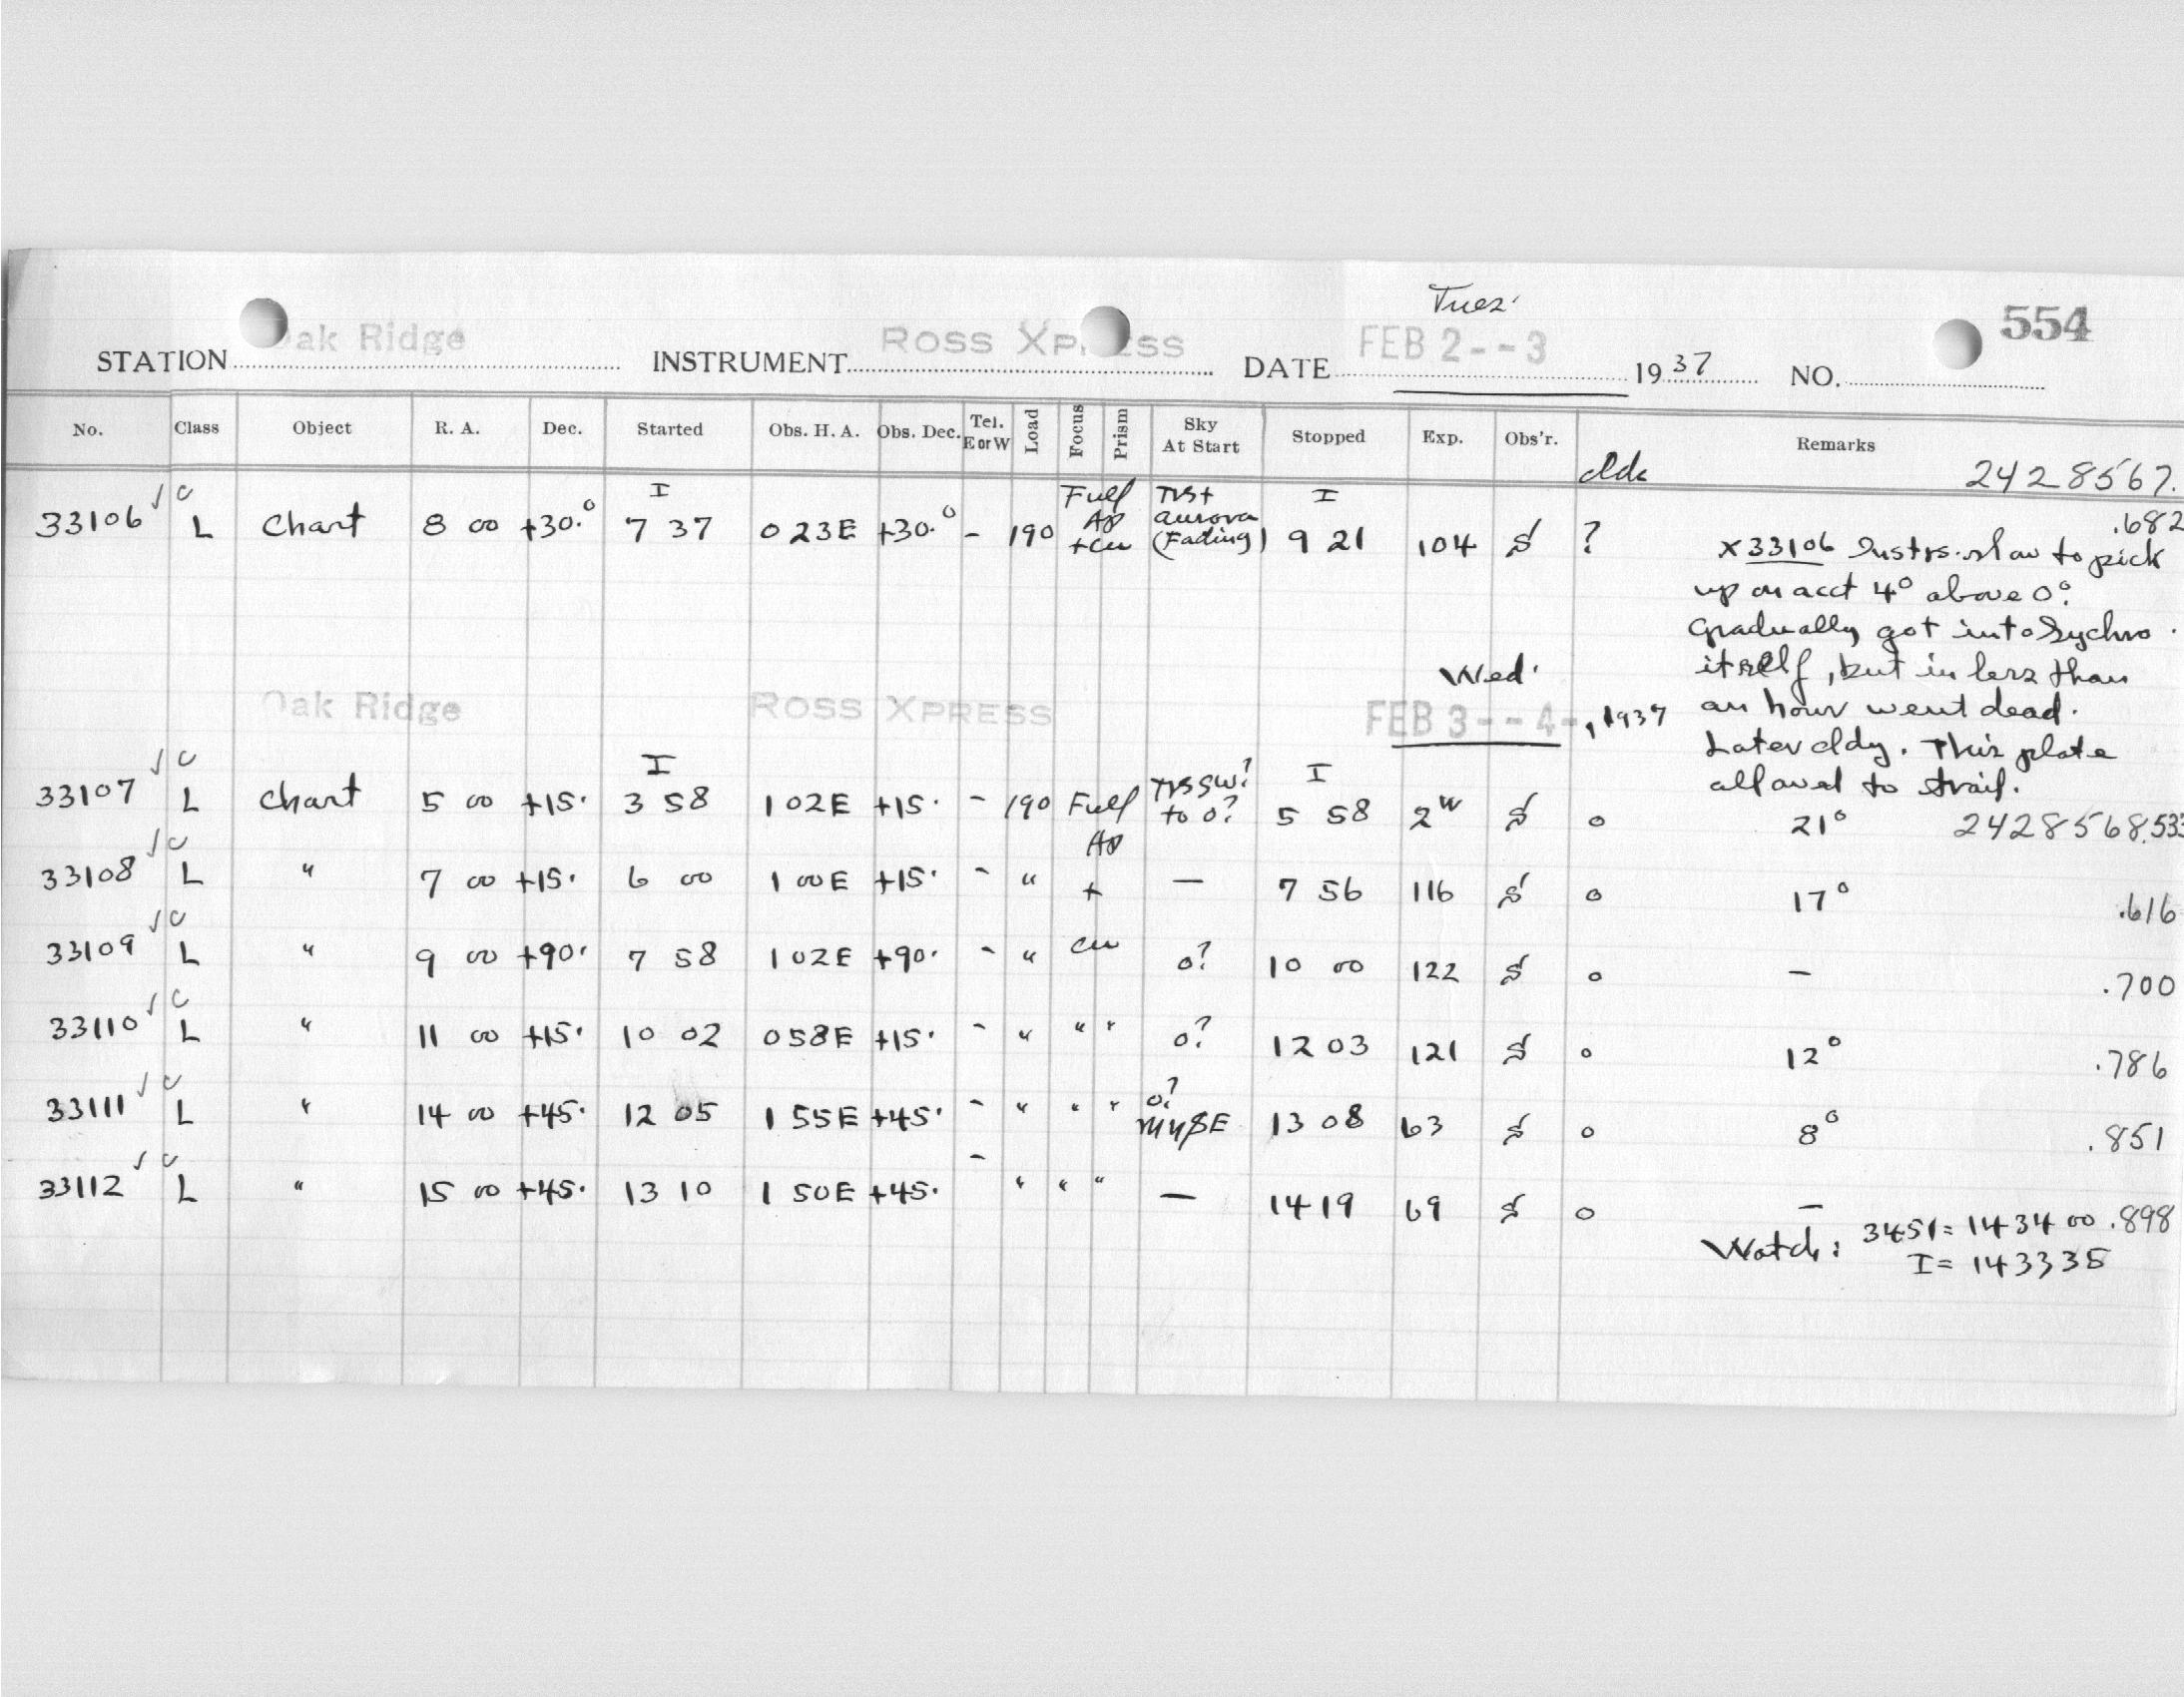 Tues.
STATION Oak Ridge INSTRUMENT Ross Xpress DATE FEB 2--3 1937 NO. 554
No. Class Object R. A. Dec. Started Obs. H. A. Obs. Dec. Tel. E or W Load Focus Prism Sky At Start Stopped Exp. Obs'r. Remarks
2428567.
33106 √ C L Chart 8 00 +30.° I 7 37 0 23E +30.° - 190 Full Ap + cu Aurora (Fading) I 9 21 104 S ? .682
X33106 Instrs. slow to pick
up on acct 4° above 0°.
Gradually got into Sychro.
itself, but in less than
an hour went dead.
Later cldy. This plate
allowed to trail.
Oak Ridge Ross Xpress Wed. FEB 3--4-, 1937
33107 √ C L Chart 5 00 +15. I 3 58 1 02E +15. - 190 Full SW? to 0? I 5 58 S 0 21° 2428568.533
33108 √ C L " 7 00 +15. 6 00 1 00E +15. - " Ap + — 7 56 116 S 0 17° .616
33109 √ C L " 9 00 +90. 7 58 1 02E +90. - " cu 0? 10 00 122 S 0 — .700
33110 √ C L " 11 00 +15. 10 02 0 58E +15. - " " " 0? 12 03 121 S 0 12° .786
33111 √ C L " 14 00 +45. 12 05 1 55E +45. - " " " 0? 13 08 63 S 0 8° .851
33112 √ C L " 15 00 +45. 13 10 1 50E +45. - " " " — 14 19 69 S 0 — .898
Watch: 3451= 14 34 00
I= 14 33 35